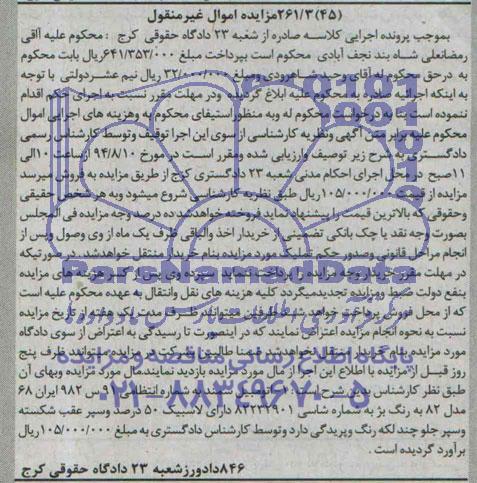 (۴۵)۲۶۱/۳مزایده اموال غیرمنقول
بموجب پرونده اجرایی کلاسه صادره از شعبه ۲۳ دادگاه حقوقی کرج : محکوم علیه آقای
رمضانعلی شاه بند نجف آبادی محکوم است بپرداخت مبلغ ۶۴۱/۳۵۳/۰۰۰ریال بابت محکوم
به درحق محکوم له آقای وحید شاهرودی ومبلغ ۳۲/۰۰۰/۰۰۰ ریال نیم عشردولتی با توجه
به اینکه اجرائیه به محکوم علیه ابلاغ گردیده ودر مهلت مقرر نسبت به اجرای حکم اقدام
ننموده است بنا به درخواست محکوم له وبه منظور استیفای محکوم به وهزینه های اجرایی اموال
محکوم علیه برابر متن آگهی ونظریه کارشناسی از سوی این اجرا توقیف وتوسط کارشناس رسمی
دادگستری به شرح زیر توصیف وارزیابی شده ومقرر است در مورخ ۹۴/۸/۱۰ ازساعت ۱۰الی
۱۱صبح در محل اجرای احکام مدنی شعبه ۲۳ دادگستری کرج از طریق مزایده به فروش میرسد
مزایده از قیمت ۱۰۵/۰۰۰/۰۰۰ریال طبق نظریه کارشناسی شروع میشود وبه هر شخص حقیقی
وحقوقی که بالاترین قیمت را پیشنهاد نماید فروخته خواهدشد ده درصد وجه مزایده فی المجلس
بصورت وجه نقد یا چک بانکی تضمینی از خریدار اخذ والباقی ظرف یک ماه از وی وصول وپس از
انجام مراحل قانونی وصدور حکم تملیک مورد مزایده بنام خریدار منتقل خواهدشد.در صورتیکه
در مهلت مقرر خریدار وجه مزایده را پرداخت ننماید سپرده وی پس از کسر هزینه های مزایده
بنفع دولت ضبط ومزایده تجدیدمیگردد کلیه هزینه های نقل وانتقال به عهده محکوم علیه است
که از محل فروش پرداخت خواهد شد طرفین میتوانند ظرف مدت یک هفته از تاریخ مزایده
نسبت به نحوه انجام مزایده اعتراض نمایند که در اینصورت تا رسیدگی به اعتراض از سوی دادگاه
مورد مزایده بنام خریدار منتقل نخواهدشد ضمنا طالبین شرکت در مزایده میتوانند ظرف پنج
روز قبل از مزایده با اطلاع این اجرا از مال مورد مزایده بازدید نمایند.مال مورد مزایده وبهای آن
طبق نظر کارشناس بدین شرح است: اتومبیل سمند به شماره انتظامی ۹ س ۹۸۲ ایران ۶۸
مدل ۸۲ به رنگ بژ به شماره شاسی ۸۲۲۳۲۹۰۱ دارای لاستیک ۵۰ درصد وسپر عقب شکسته
وسپر جلو چند لکه رنگ وپریدگی دارد وتوسط کارشناس دادگستری به مبلغ ۱۰۵/۰۰۰/۰۰۰ریال
برآورد گردیده است .
۸۴۶دادورزشعبه ۲۳ دادگاه حقوقی کرج
ParsNamadData
پایگاه اطلاع رسانی مناقصه و مزایده
۰۲۱-۸۸۳۴۹۶۷۰-۵